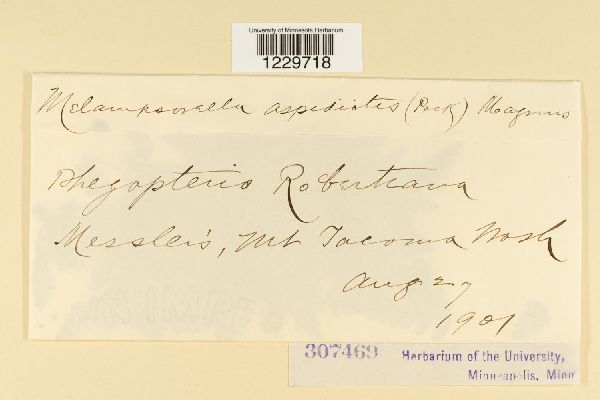 University of Minnesota Herbarium
1229718
Melampsorella aspidiotis (Peck) Magnus
Phegopteris Robertiana
Messler's, Mt Tacoma Wash
Aug 27
1901
307469 Herbarium of the University,
Minneapolis, Minn